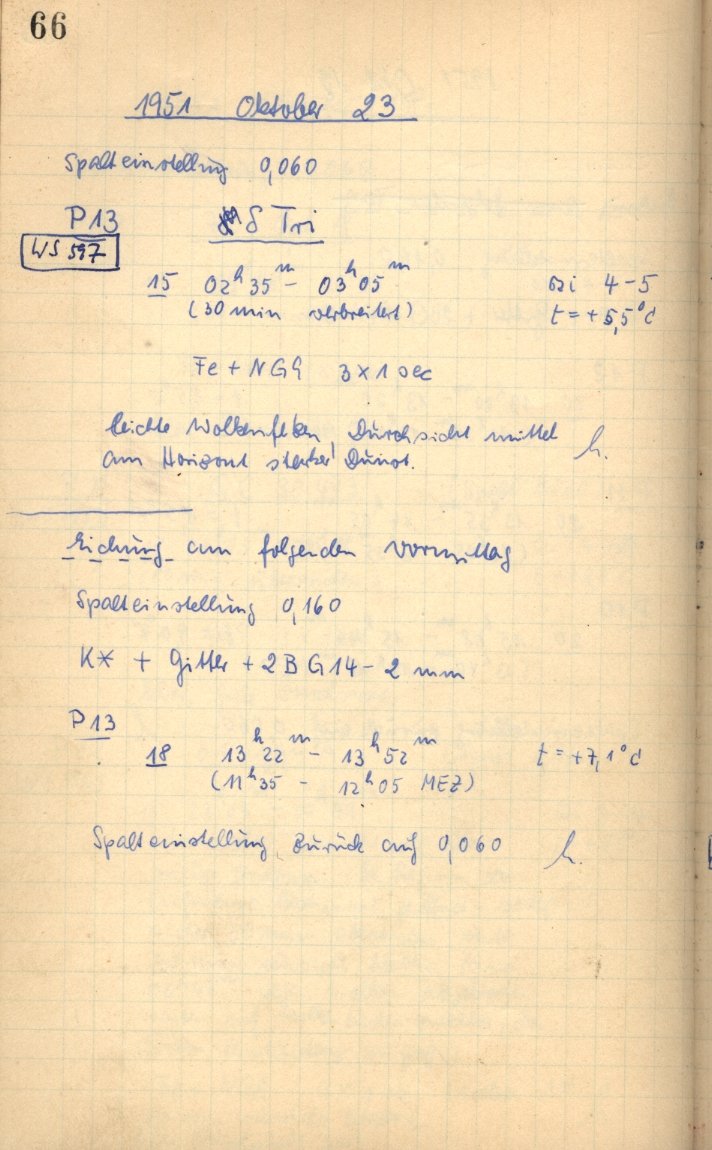 66
1951 Oktober 23
Spalteinstellung 0,060
P13 δ Tri
WS 597
15 02h 35m - 03h 05m si 4-5
(30 min verbreitert) t = +5,5°C
Fe + NG9 3 x 1 sec
leichte Wolkenfelder, Durchsicht mittel h.
am Horizont starker Dunst.
Eichung am folgenden Vormittag
Spalteinstellung 0,160
K* + Gitter + 2 BG14 - 2 mm
P13
18 13h 22m - 13h 52m t = +7,1°C
(11h 35 - 12h 05 MEZ)
Spalteinstellung zurück auf 0,060 h.